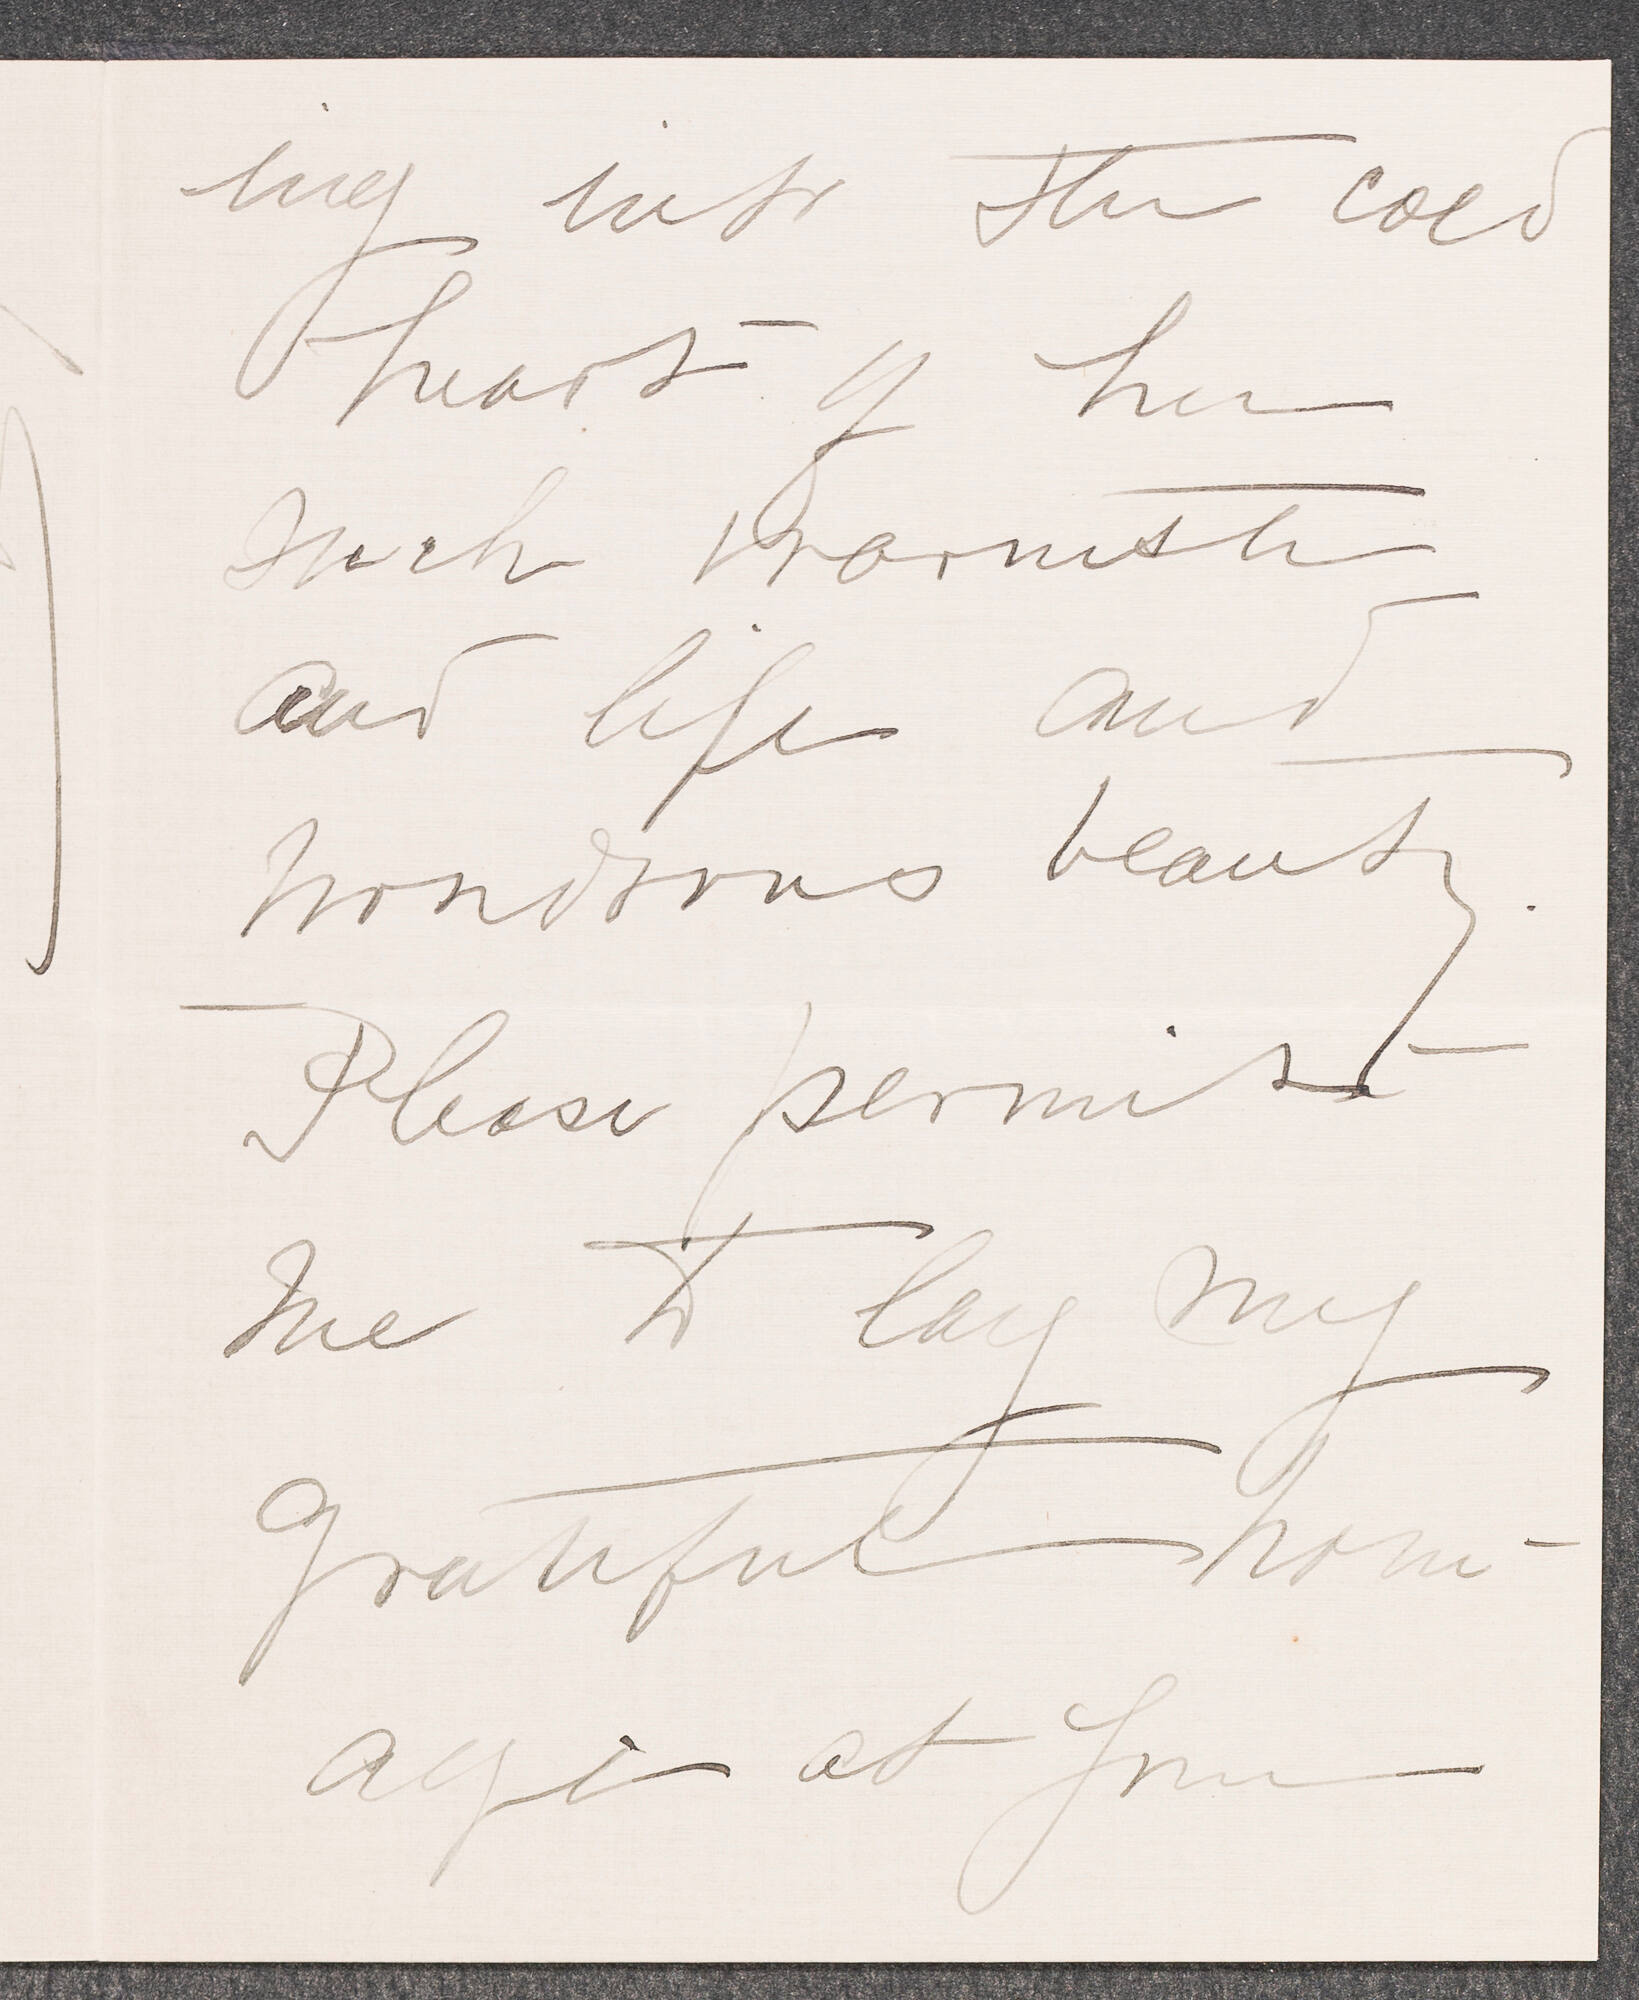 ing into the cold
heart of her
such warmth
and life and
wondrous beauty.
Please permit
me to lay my
grateful hom-
age at your